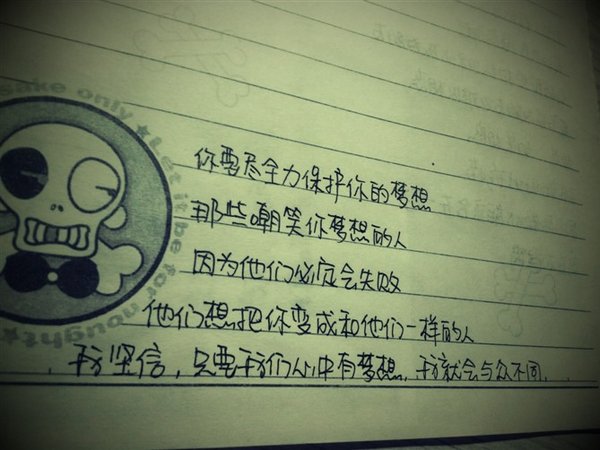 sake only ★ Let it be for nought ★
你要尽全力保护你的梦想
那些嘲笑你梦想的人
因为他们必定会失败
他们想把你变成和他们一样的人
我坚信,只要我们心中有梦想,我就会与众不同.